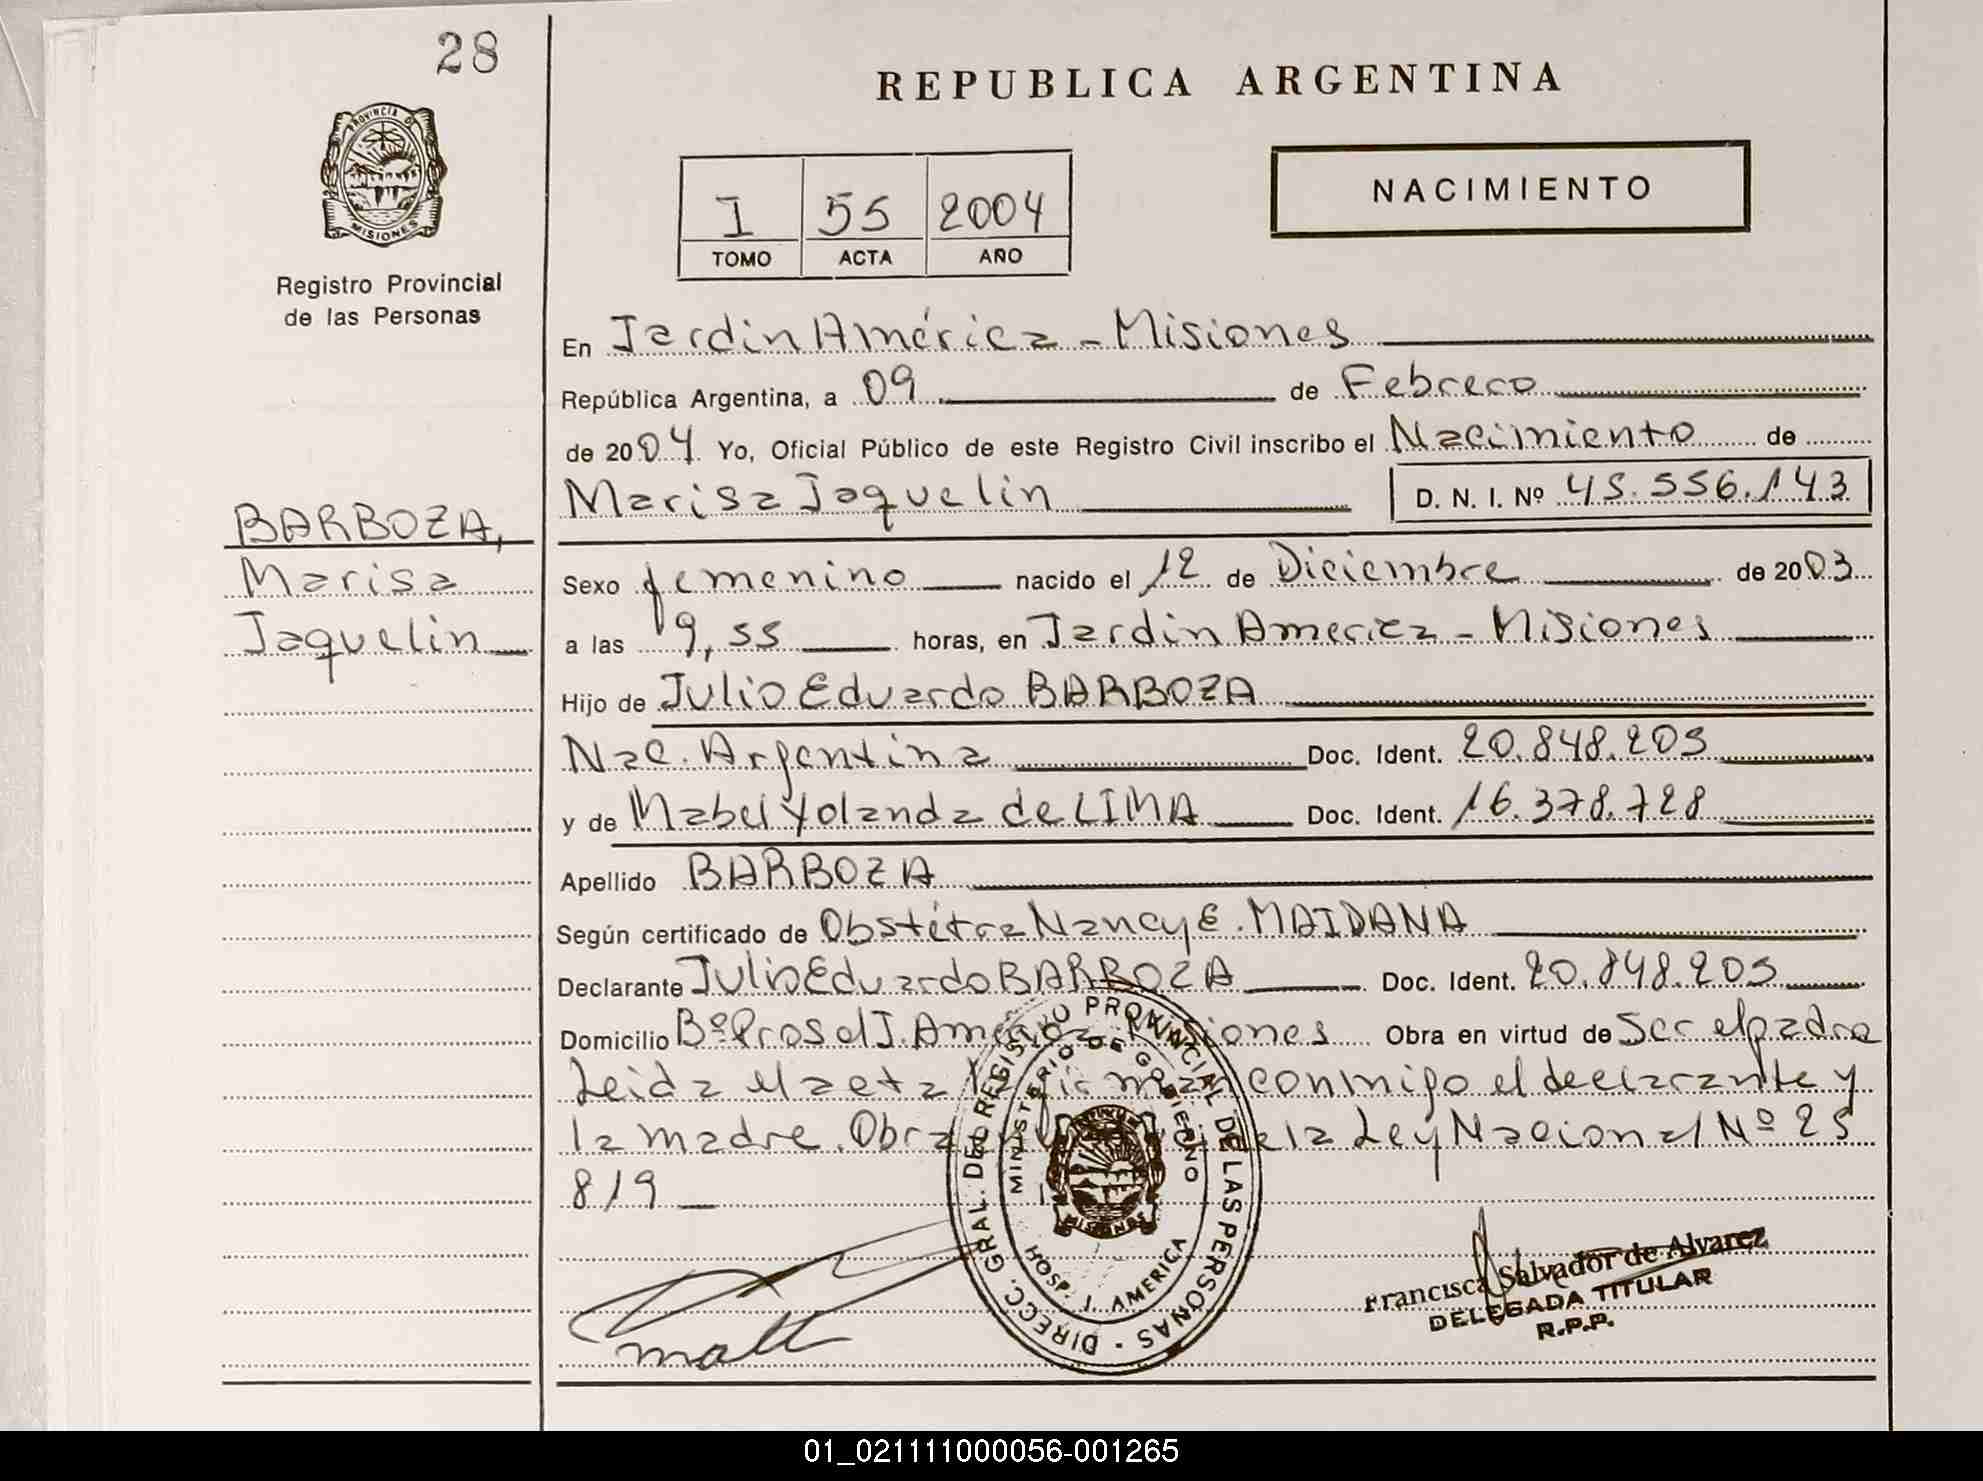 28
REPUBLICA ARGENTINA
PROVINCIA DE
MISIONES
Registro Provincial
de las Personas
NACIMIENTO
I 55 2004
TOMO ACTA AÑO
En Jardin América - Misiones
República Argentina, a 09 de Febrero
de 2004 Yo, Oficial Público de este Registro Civil inscribo el Nacimiento de
Marisa Jaquelin D. N. I. Nº 45.556.143
BARBOZA,
Marisa
Jaquelin
Sexo femenino nacido el 12 de Diciembre de 2003
a las 9,55 horas, en Jardin America - Misiones
Hijo de Julio Eduardo BARBOZA
Nac. Argentina Doc. Ident. 20.848.205
y de Mabel Yolanda de LIMA Doc. Ident. 16.378.728
Apellido BARBOZA
Según certificado de Obstétra Nancy E. MAIDANA
Declarante Julio Eduardo BARBOZA Doc. Ident. 20.848.205
Domicilio Bº Prosol J. América Misiones Obra en virtud de Ser el padre
Leida el acta la firman conmigo el declarante y
la madre. Obra de la Ley Nacional Nº 25
819
DIRECC. GRAL. DEL REGISTRO PROVINCIAL DE LAS PERSONAS
MINISTERIO DE GOBIERNO
MISIONES
HOSP. J. AMERICA
Francisca Salvador de Alvarez
DELEGADA TITULAR
R.P.P.
01_021111000056-001265